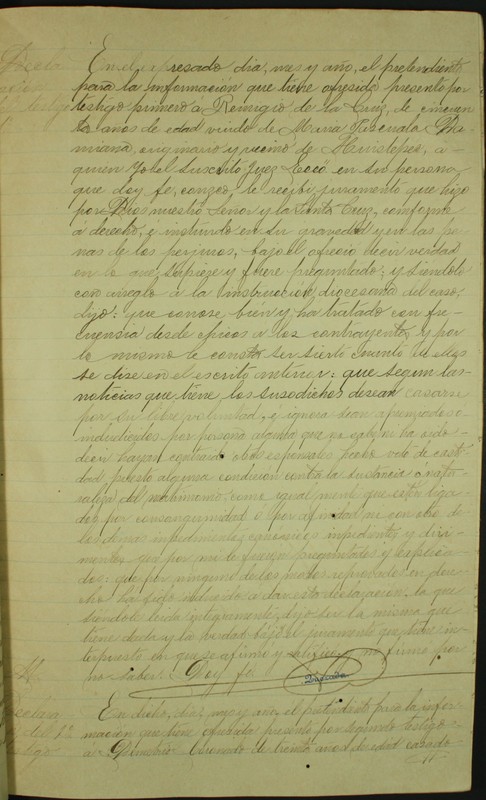 Decla
ración
En el expresado dia, mes y año, el pretendiente
para la información que tiene ofresida presentó por
testigo primero á Remigio de la Cruz, de cincuen
ta años de edad viudo de Maria Pascuala
originario y vecino de á
quien Yo el suscrito Juez Ecco en su persona
que doy fe, conozco, le recibí juramento que hizo
por Dios nuestro Señor y la Santa Cruz, conforme
á derecho, e instruido en su gravedad y en las pe
nas de los perjuros, bajo él ofreció decir verdad
en lo que supieze y fuere preguntado; y siendolo
con arreglo á la instrucción diocesana del caso,
dijo: que conose bien y ha tratado con fre
cuensia desde chicos a los contrayentes, y por
lo mismo le consta ser sierto cuanto de ellos
se dise en el escrito anterior: que segun las
noticias que tiene los susodichos desean casarse
por su libre voluntad, y ignora sean apremiados o
inducidos por persona alguna que no sabe ni ha oido
decir hayan contraido otros esponsales hecho voto de casti
dad, puesto alguna condición contra la sustancia ó natu
raleza del matrimonio, como igual mente que esten liga
dos por consanguinidad ó por afinidad ni con otro de
los demas impedimentos canonicos impedientes y diri
mentes, que por mi le fueron preguntados y explica
dos: que por ninguno de los motes reprovados en dere
cho ha sido inducido a dar esta declaración; la que
siendole leida integramente, dijo ser la misma que
tiene dada y la verdad bajo el juramento que tiene in
terpuesto en que se afirmó y ratificó y no firmó por
no saber. Doy fe.
Quezada
Declara
del 2º
tigo
En dicho, dia, mes y año, el pretendiente para la infor
mación que tiene ofresida presentó por segundo testigo
á Coronado de treinta años de edad casado